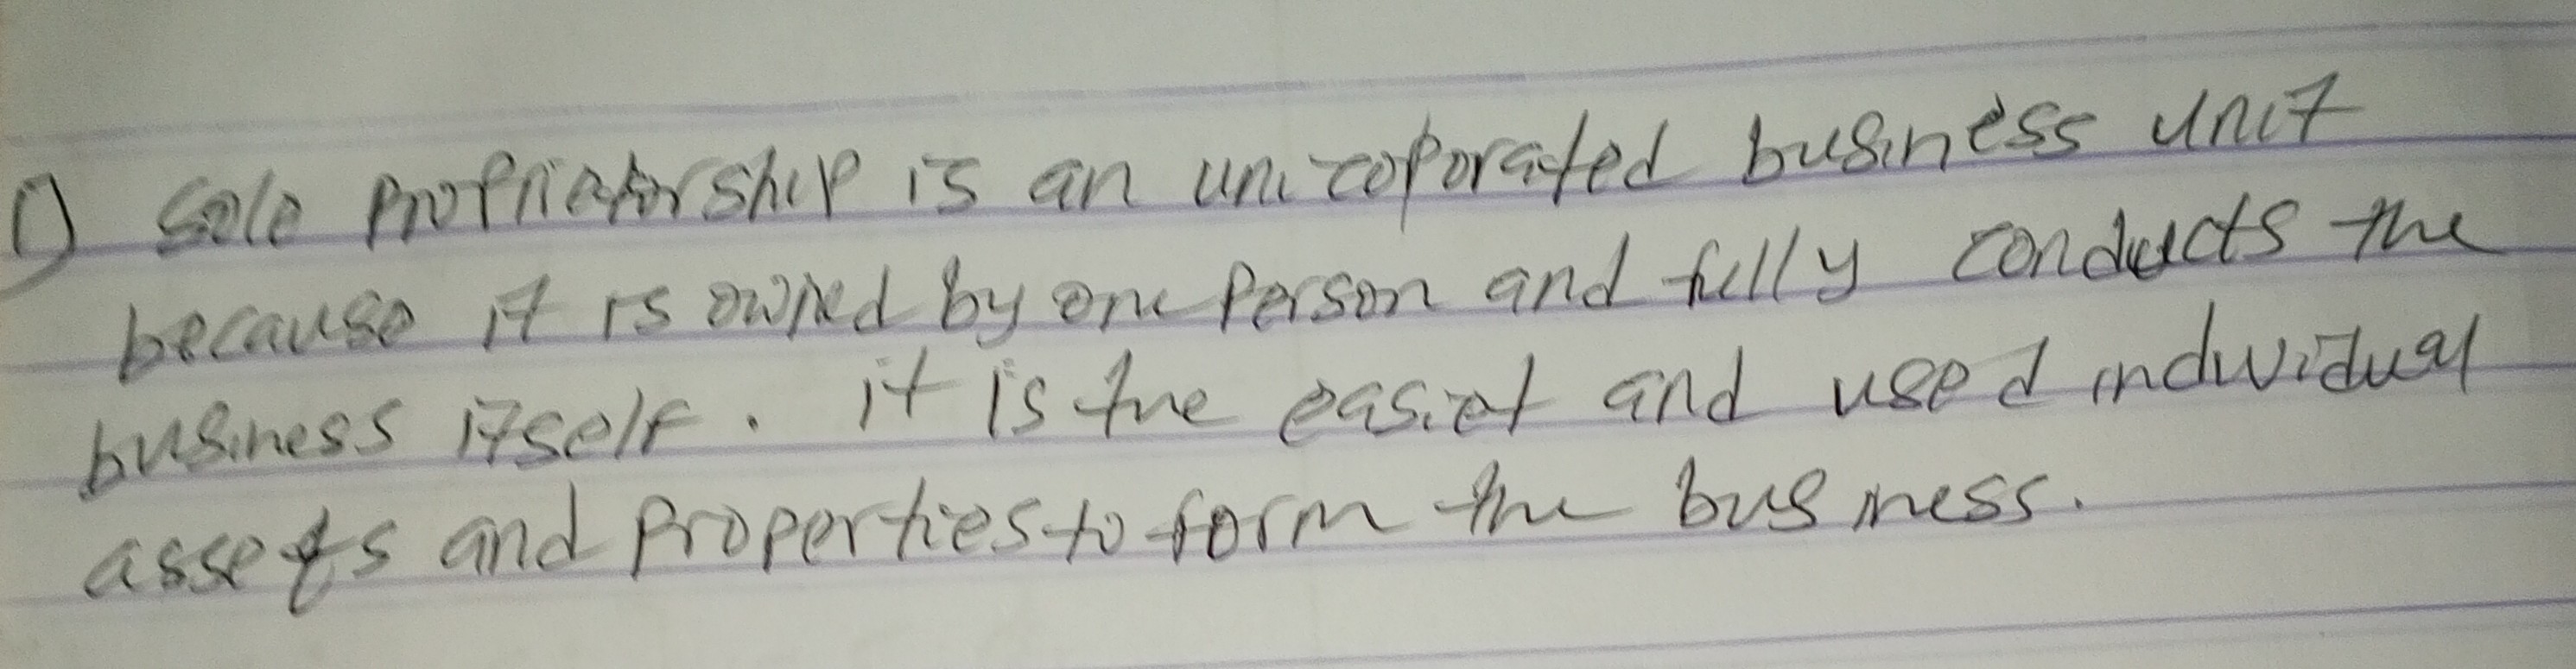 1) Sole Proprietorship is an unicoporated business unit
because it is owned by one Person and fully conducts the
business itself. it is the easiet and used individual
assets and Properties to form the business.